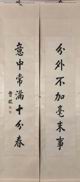 分外不加毫末事
意中常滿十分春